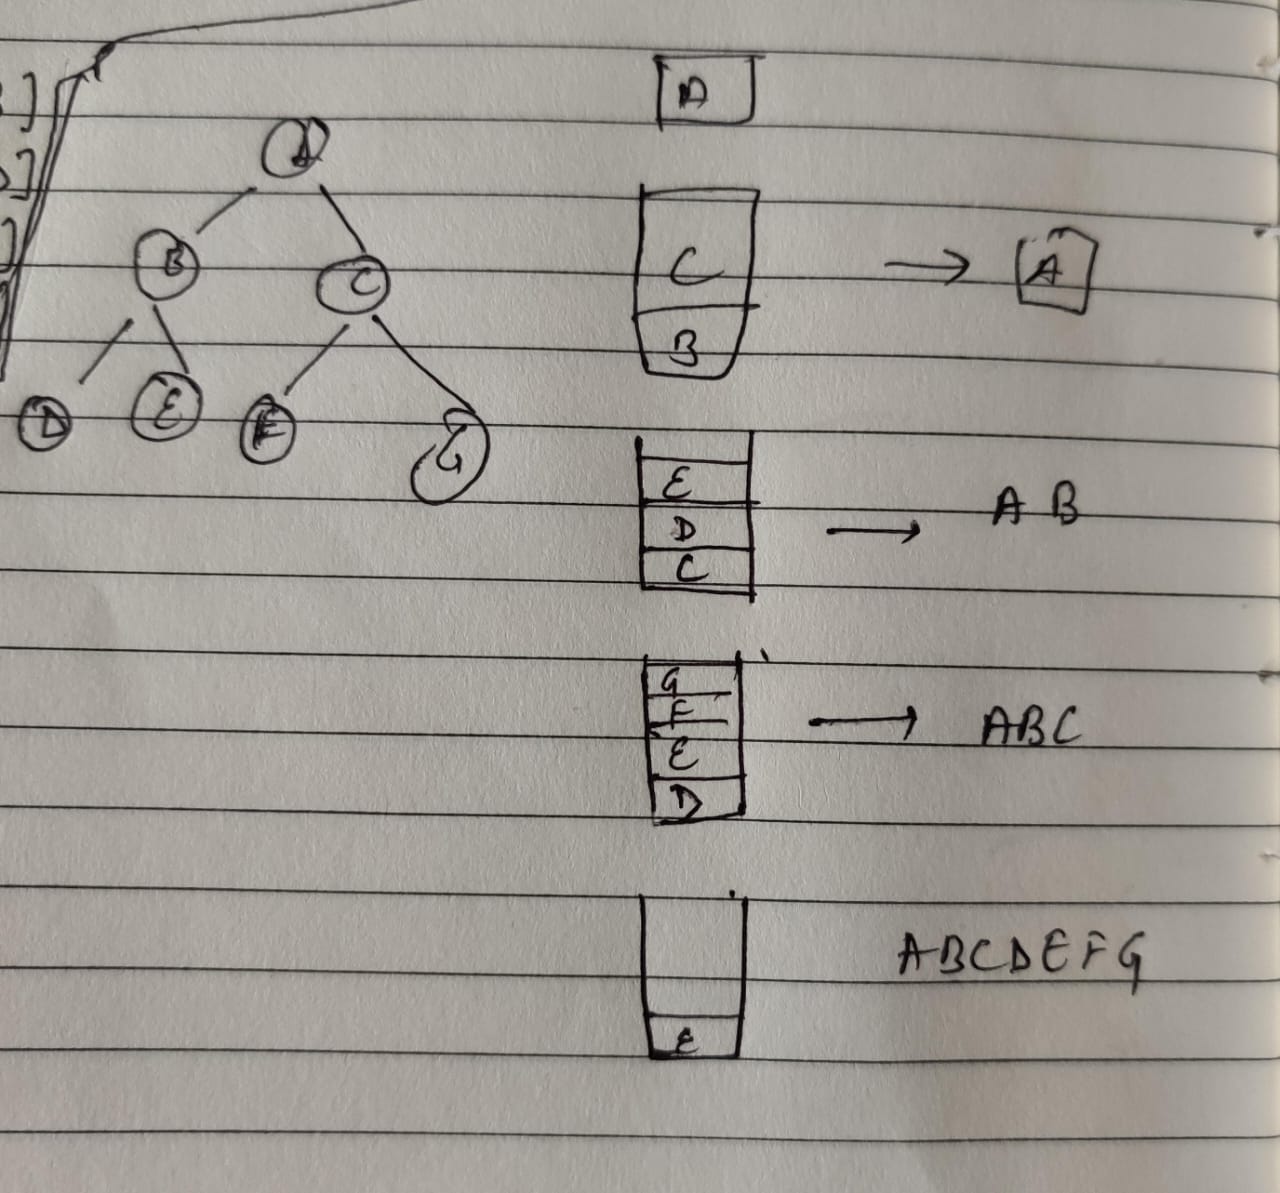 ]
]
]
D
A
B C
D E F G
C
B
→ A
E
D
C
→ A B
G
F
E
D
→ ABC
E
ABCDEFG